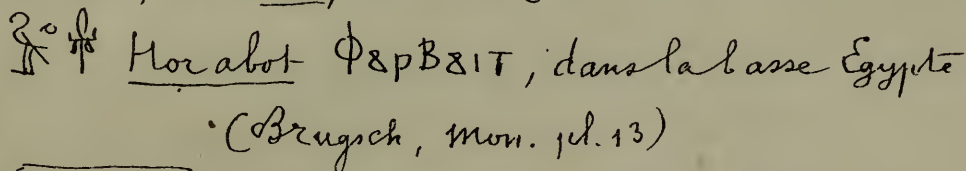 Horabot ⲪⲁⲣⲂⲁⲓⲧ, dans la basse Égypte
(Brugsch, mon. pl. 13)